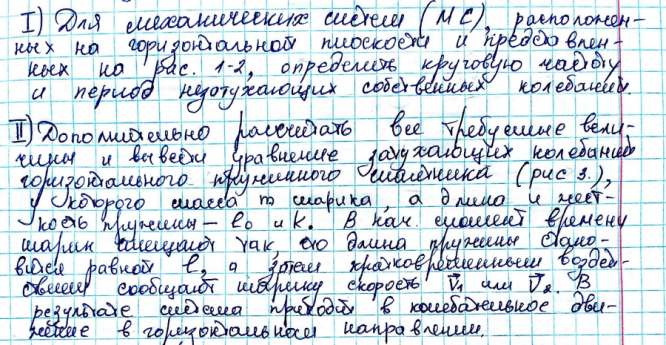 I) Для механических систем (МС), расположен-
ных на горизонтальной плоскости и представлен-
ных на рис. 1-2, определить круговую частоту
и период незатухающих собственных колебаний.
II) Дополнительно рассчитать все требуемые вели-
чины и вывести уравнение затухающих колебаний
горизонтального пружинного маятника (рис 3.),
у которого масса m шарика, а длина и жест-
кость пружины – l₀ и k. В нач. момент времени
шарик смещают так, что длина пружины стано-
вится равной l, а затем кратковременным воздей-
ствием сообщают шарику скорость V⃗₁ или V⃗₂. В
результате система приходит в колебательное дви-
жение в горизонтальном направлении.